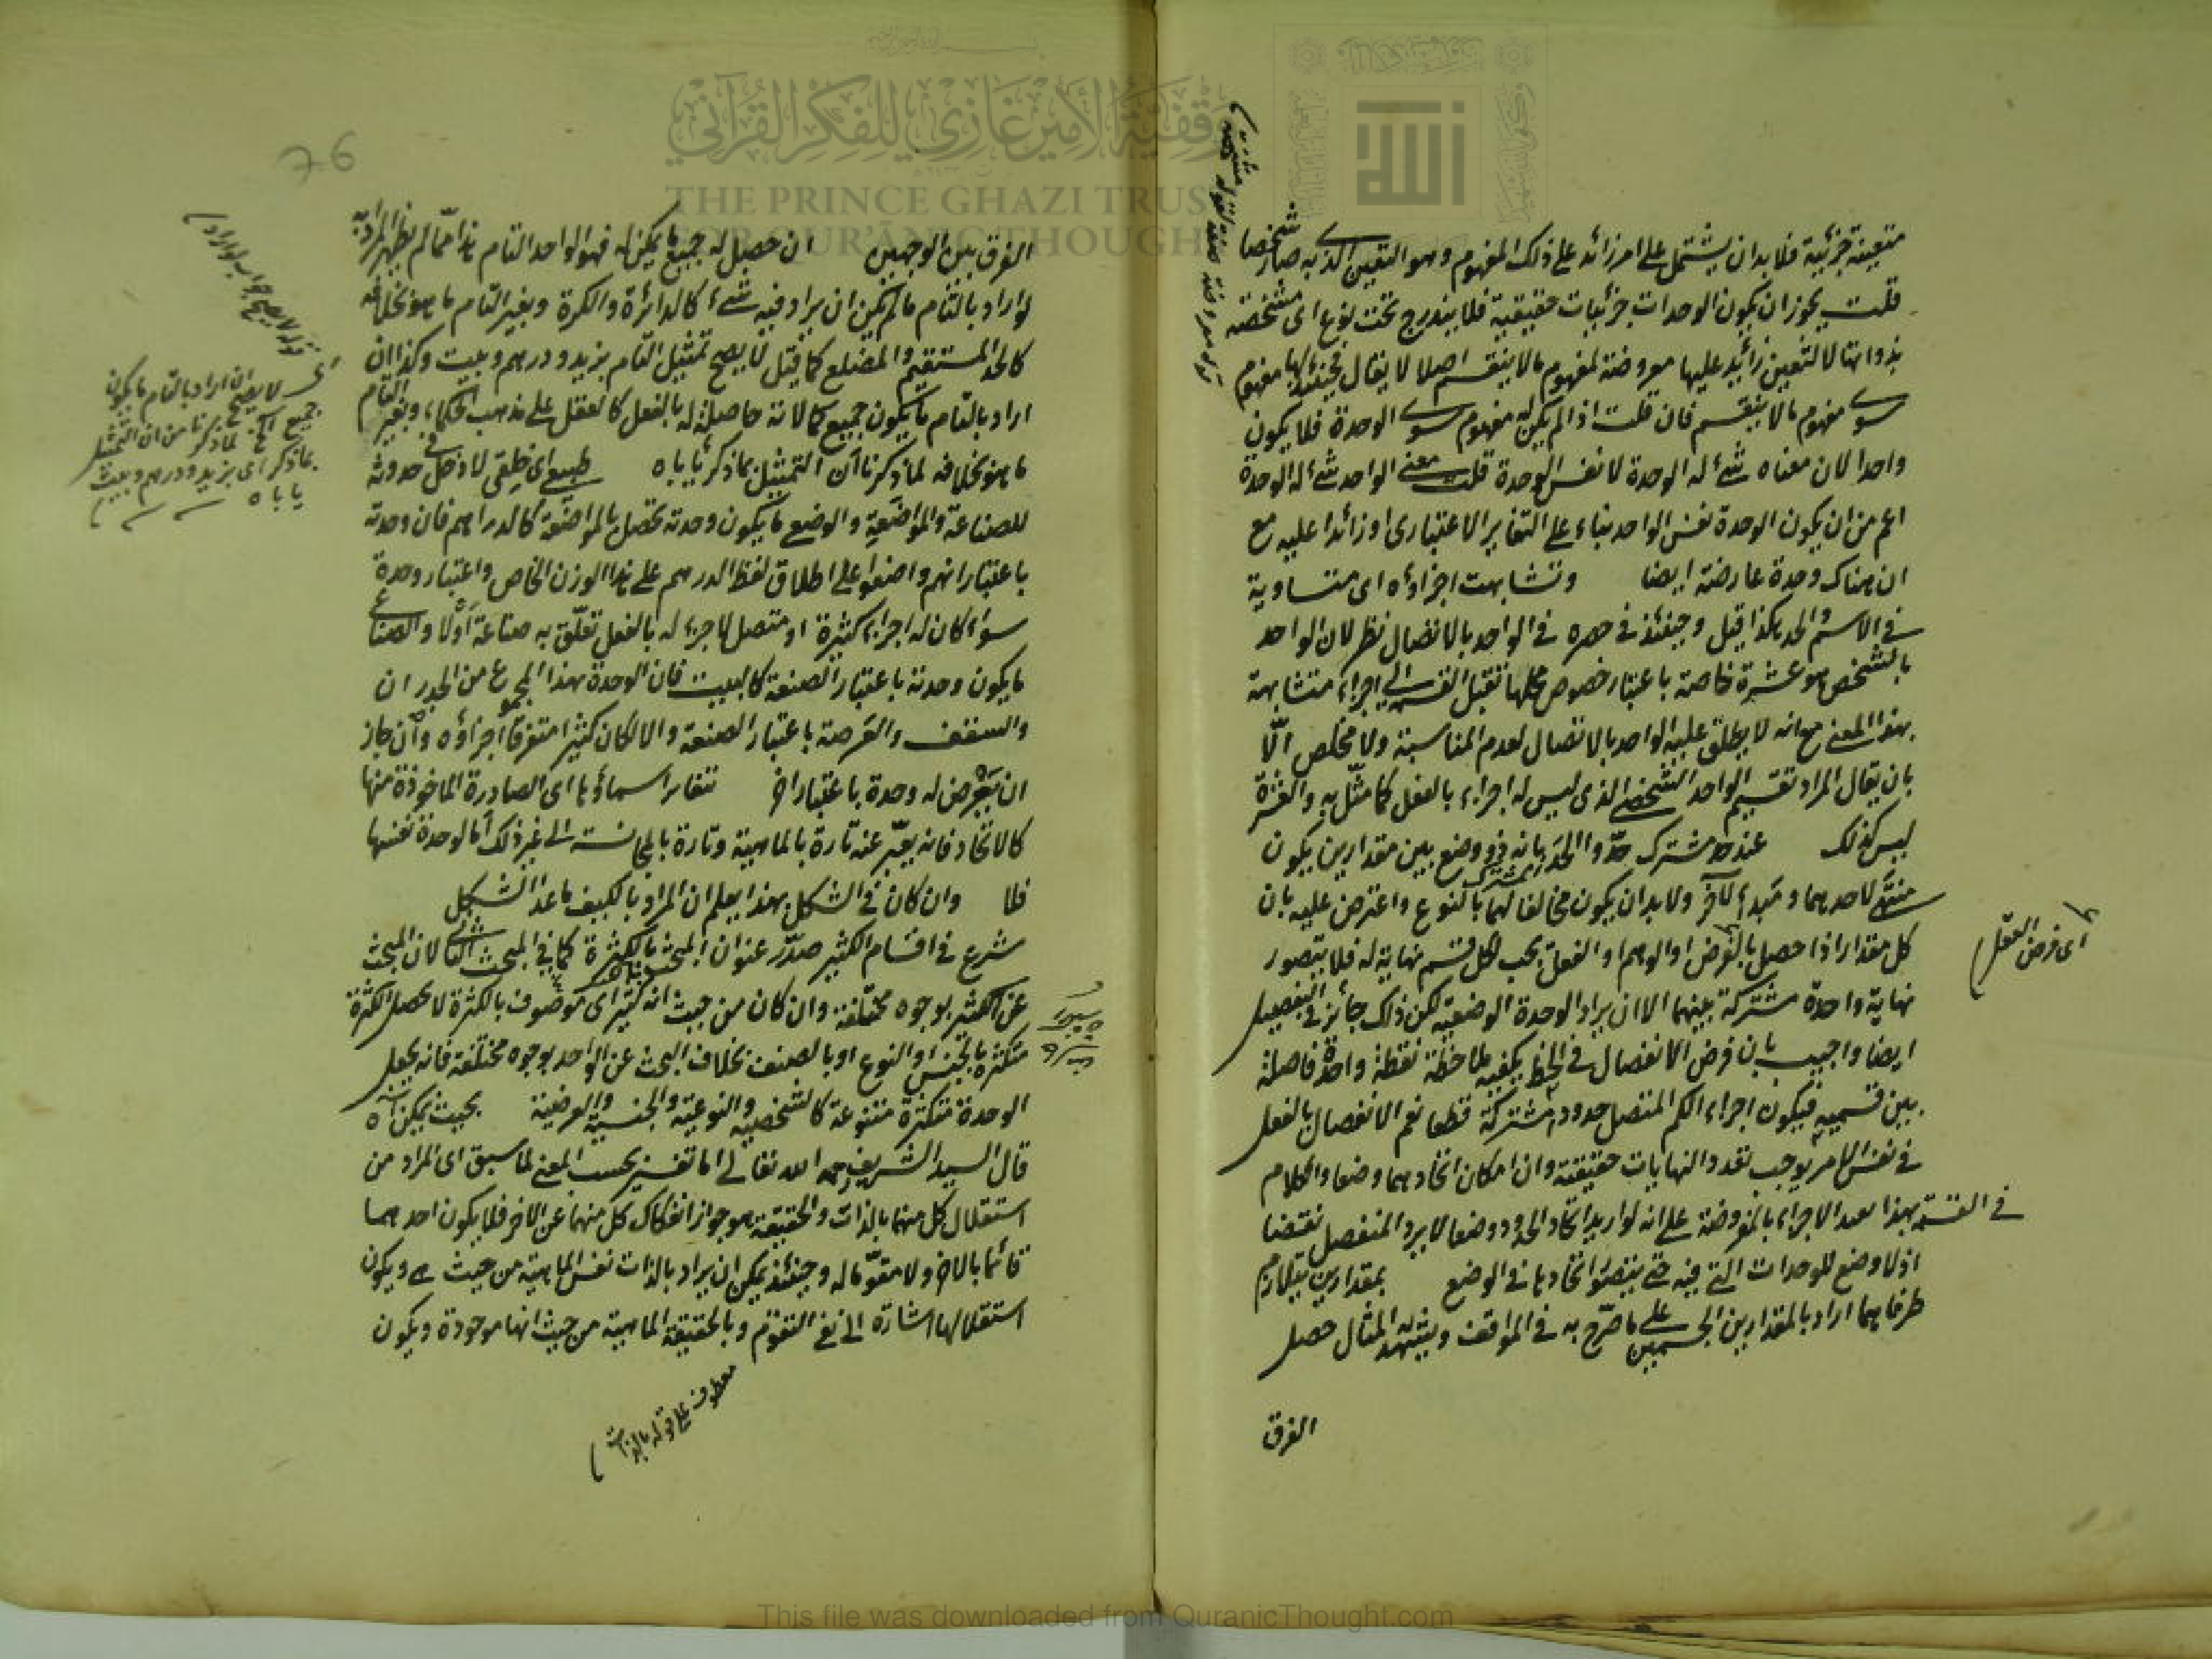 وقفية الأمير غازي للفكر القرآني
THE PRINCE GHAZI TRUST
FOR QUR'ĀNIC THOUGHT
الله
متعينة جزئية فلا بد ان يشتمل على امر زائد على ذلك المفهوم وهو التعين الذى به صار شخصا
قلت يجوز ان يكون الوحدات جزئيات حقيقية فلا يندرج تحت نوع اى مشخصة
بذواتها لا لتعين زائد عليها معروضة لمفهوم ما لا ينقسم اصلا لا يقال فحينئذ لها مفهوم
سوى مفهوم ما لا ينقسم فان قلت اذا لم يكن له مفهوم سوى الوحدة فلا يكون
واحدا لان معناه شئ له الوحدة لا نفس الوحدة قلت معنى الواحد شئ له الوحدة
اعم من ان يكون الوحدة نفس الواحد بناء على التغاير الاعتبارى او زائدا عليه مع
ان هناك وحدة عارضة ايضا وتشابهت اجزاؤه اى متساوية
فى الاسم والحد هكذا قيل وحينئذ فى حصره فى الواحد بالاتصال نظر لان الواحد
بالشخص هو عشرة خاصة باعتبار خصوص محلها تقبل القسمة الى اجزاء متشابهة
بهذا المعنى مع انه لا يطلق عليه الواحد بالاتصال لعدم المناسبة ولا مخلص الّا
بان يقال المراد تقسيم الواحد الشخصى الذى ليس له اجزاء بالفعل كما مثّل به والعشرة
ليس كذلك عند حد مشترك حدّوا الحد المشترك بانه ذو وضع بين مقدارين يكون
منتهى لاحدهما ومبدأ لآخر ولا بد ان يكون مخالفا لهما بالنوع واعترض عليه بان
كل مقدار اذا حصل بالفرض او الوهم او الفعل يجب لكل قسم نهاية له فلا يتصور
اى فرض العقل
نهاية واحدة مشتركة بينهما الا ان يراد الوحدة الوضعية لكن ذلك جائز فى التفصيل
ايضا واجيب بان فرض الانفصال فى الخط يكفيه ملاحظة نقطة واحدة فاصلة
بين قسميه فيكون اجزاء الكم المتصل حدود مشتركة قطعا نعم الانفصال بالفعل
فى نفس الامر يوجب تعدد النهايات حقيقة وان امكان اتحادهما وضعا والكلام
فى القسمة بهذا الاجزاء بالمفروضة على انه لو اريد اتحاد الحدود وضعا لا يرد المنفصل نقضا
اذ لا وضع للوحدات التى فيه حتى يتصور اتحادها فى الوضع بمقدارين يتلازم
طرفاهما اراد بالمقدارين الجسمين على ما صرّح به فى المواقف ويشهد له المثال حصل
الفرق
76
الفرق بين الوجهين ان حصل له جميع ما يمكن له فهو الواحد التام هذا ممّا لم يظهر المراد به
لو اراد بالتام ما لم يمكن ان يزاد فيه شئ كالدائرة والكرة وبغير التام ما هو بخلافه
كالخط المستقيم والمضلع كما قيل لا يصح تمثيل التام بزيد ودرهم وبيت وكذا ان
اراد بالتام ما يكون جميع كمالاته حاصلة له بالفعل كالعقل على مذهب الحكماء وبغير التام
ما هو بخلافه لما ذكرنا ان التمثيل بما ذكر يأباه طبيعى اى خلقى لا دخل فى حدوثه
للصناعة والمواضعة والوضع ما يكون وحدته تحصل بالمواضعة كالدراهم فان وحدته
باعتبار انهم واضعوا على اطلاق لفظ الدرهم على هذا الوزن الخاص واعتبار وحدة
سواء كان له اجزاء كثيرة او متصل لا جزء له بالفعل تعلّق به صناعة أوّلا والصناعى
ما يكون وحدته باعتبار الصنعة كالبيت فان الوحدة لهذا المجموع من الجدران
والسقف والعرصة باعتبار الصنعة والا لكان كثيرا متفرقا اجزاؤه وان جاز
ان يعرض له وحدة باعتبار اخر تتغاير اسماؤها اى الصادرة المأخوذة منها
كالاتحاد فانه يعبّر عنه تارة بالماهية وتارة بالمجانسة الى غير ذلك أما الوحدة نفسها
فلا وان كان فى الشكل بهذا يعلم ان المراد بالكيف ما عدا الشكل
شرع فى اقسام الكثير صدّر عنوان المبحث بالكثرة كما فى المبحث الثانى لان البحث
عن الكثير بوجوه مختلفة وان كان من حيث انه كثير اى موصوف بالكثرة لا يحصل الكثرة
متكثرة بالجنس او النوع او بالصنف بخلاف البحث عن الواحد بوجوه مختلفة فانه يجعل
الوحدة متكثرة متنوعة كالشخصية والنوعية والجنسية والعرضية بحيث يمكن اه
قال السيد الشريف رحمه الله تعالى اما تفسير بحسب المعنى لما سبق اى المراد من
استقلال كل منهما بالذات والحقيقة هو جواز انفكاك كل منهما عن الاخر فلا يكون احدهما
قائما بالاخر ولا مقوّما له وحينئذ يمكن ان يراد بالذات نفس الماهية من حيث هى ويكون
استقلالها اشارة الى نفى التقوّم وبالحقيقة الماهية من حيث انها موجودة ويكون
معطوف على قوله بالذات
قوله لا يصح جواب لو اراد
اى لا يصح ان اراد بالتام ما يكون
جميع اه لما ذكرنا من ان التمثيل
بما ذكر اى بزيد ودرهم وبيت
يأباه
This file was downloaded from QuranicThought.com